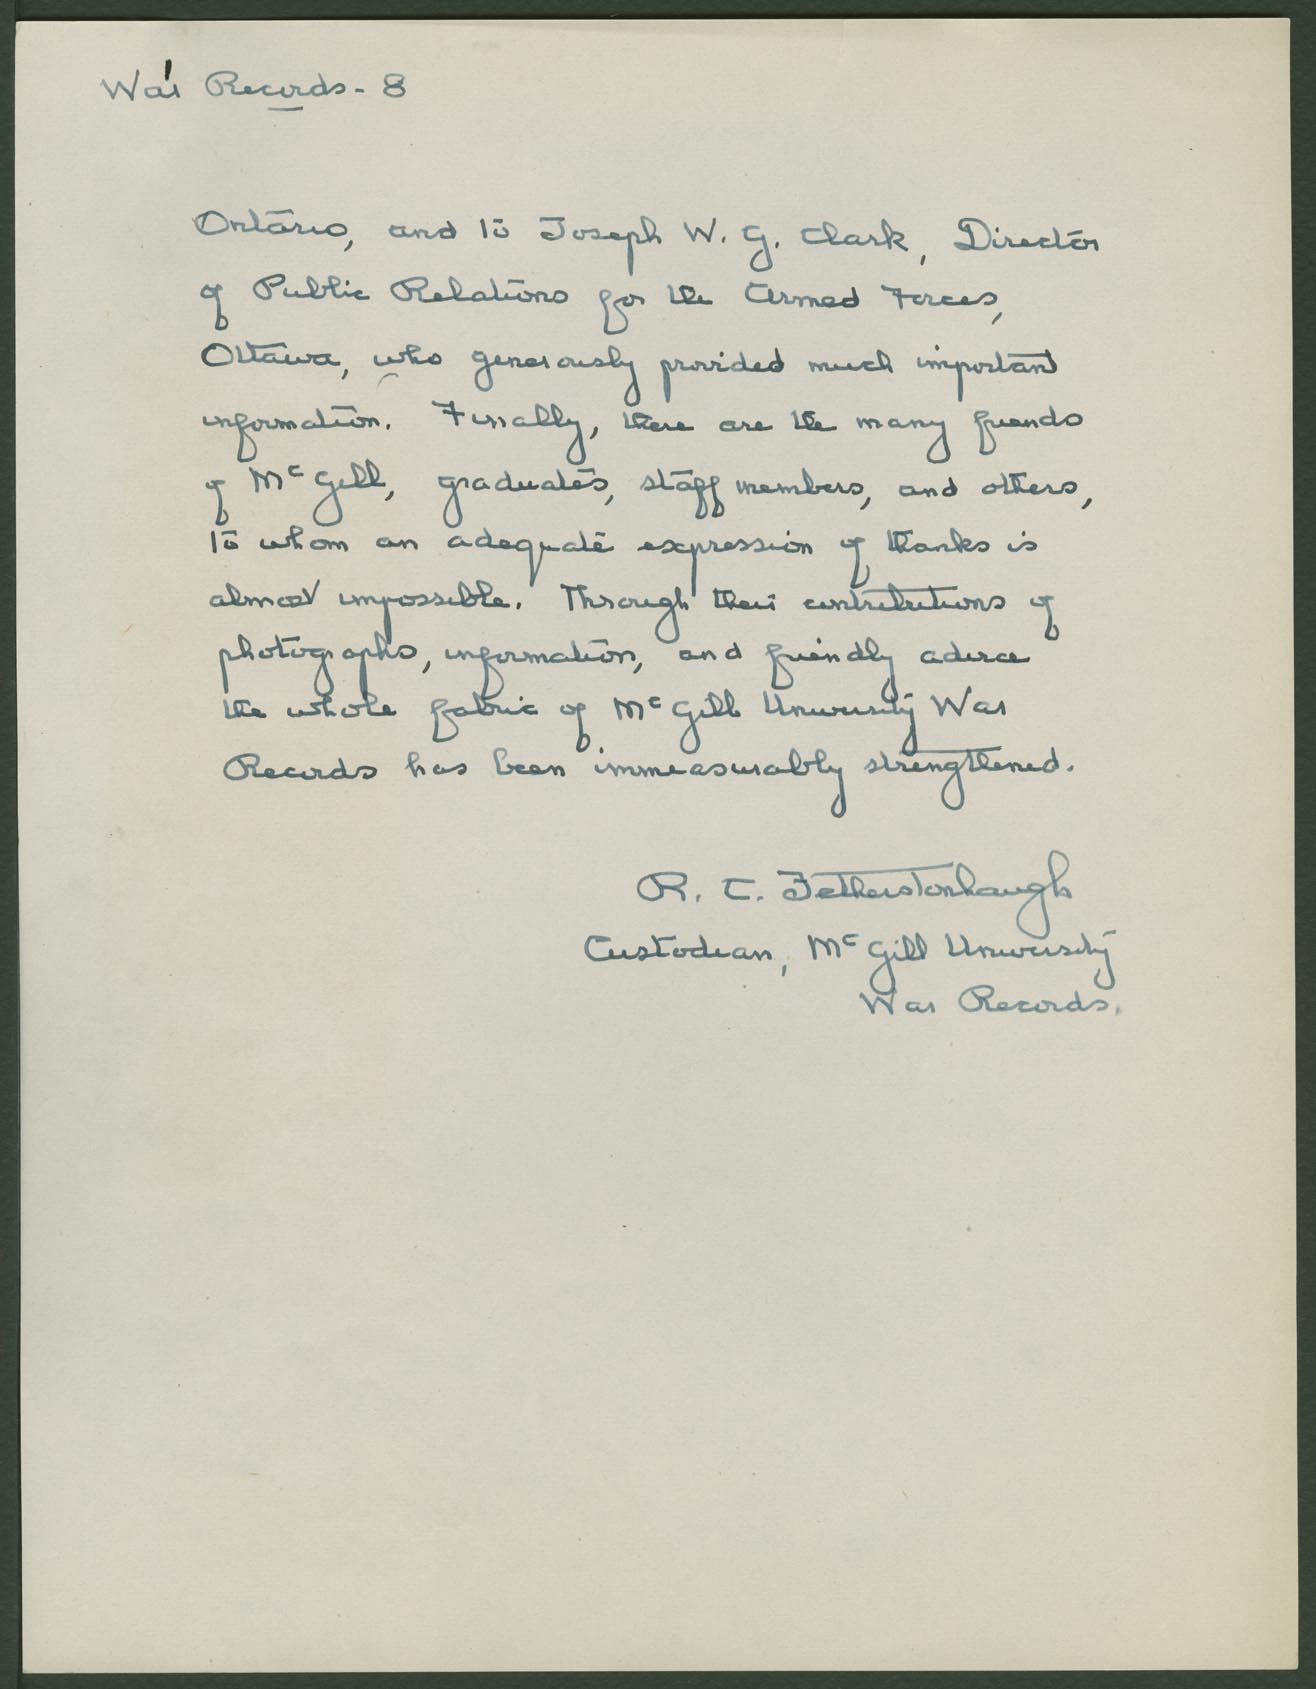 War Records - 8
Ontario, and to Joseph W. G. Clark, Director
of Public Relations for the Armed Forces,
Ottawa, who generously provided much important
information. Finally, there are the many friends
of McGill, graduates, staff members, and others,
to whom an adequate expression of thanks is
almost impossible. Through their contributions of
photographs, information, and friendly advice
the whole fabric of McGill University War
Records has been immeasurably strengthened.
R. C. Fetherstonhaugh
Custodian, McGill University
War Records.